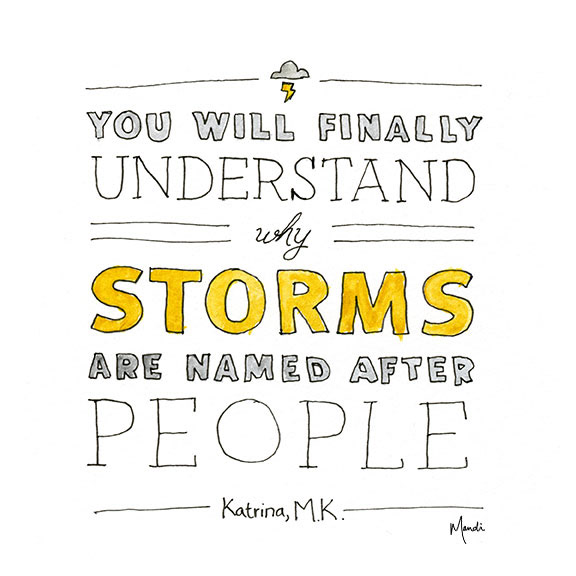 YOU WILL FINALLY
UNDERSTAND
why
STORMS
ARE NAMED AFTER
PEOPLE
Katrina, M.K.
Mandi